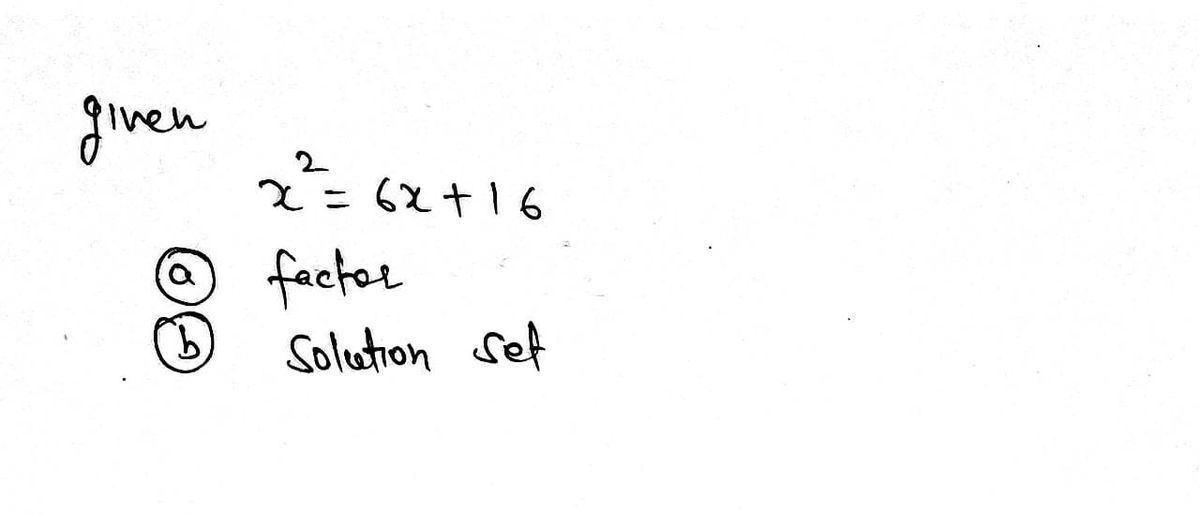 given
x² = 6x + 16
ⓐ factor
ⓑ solution set